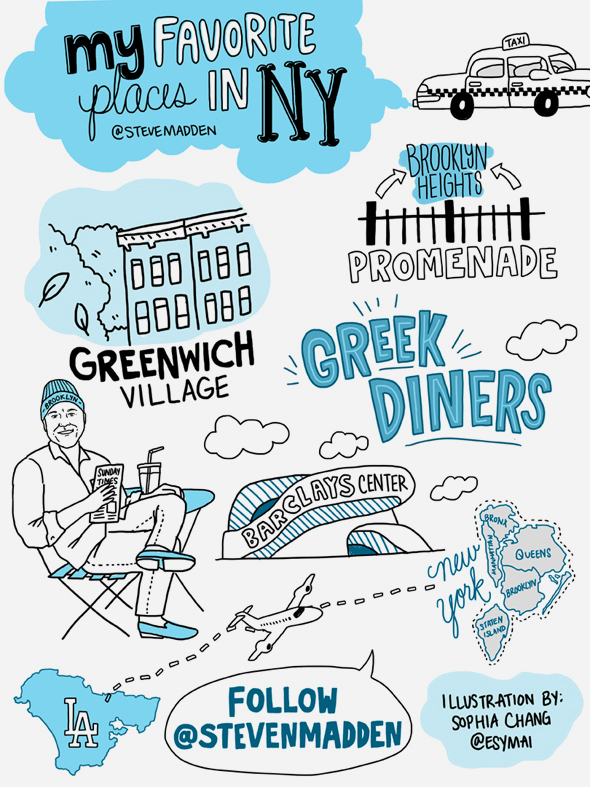 my FAVORITE
places IN NY
@STEVEMADDEN
TAXI
BROOKLYN
HEIGHTS
PROMENADE
GREENWICH
VILLAGE
GREEK
DINERS
BROOKLYN
SUNDAY
TIMES
BARCLAYS CENTER
new
york
BRONX
MANHATTAN
QUEENS
BROOKLYN
STATEN
ISLAND
LA
FOLLOW
@STEVENMADDEN
ILLUSTRATION BY:
SOPHIA CHANG
@ESYMAI